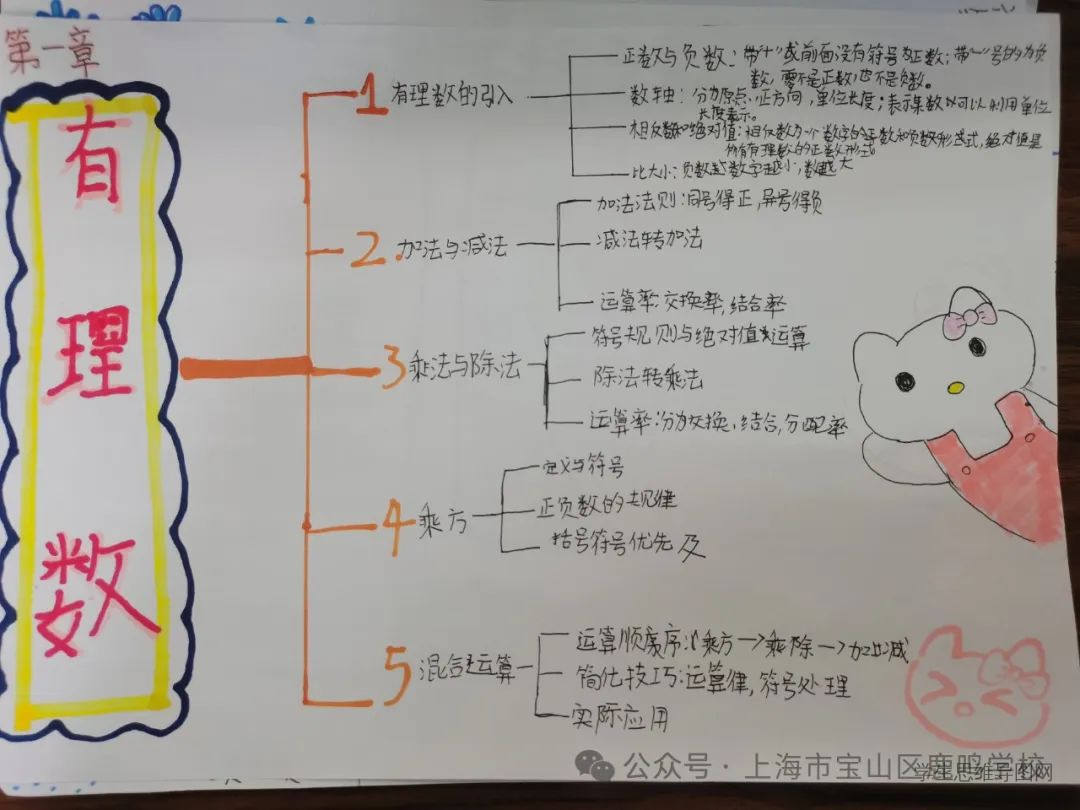 第一章
有理数
1 有理数的引入
正数与负数:带"+"或前面没有符号为正数;带"—"号的为负
数,零不是正数,也不是负数。
数轴:分为原点、正方向,单位长度;表示某数以可以利用单位
长度表示。
相反数和绝对值:相反数为一个数字的正数和负数形式,绝对值是
所有有理数的正数形式
比大小:负数越数字越小,数越大
2 加法与减法
加法法则:同号得正,异号得负
减法转加法
运算率:交换率,结合率
3 乘法与除法
符号规则与绝对值运算
除法转乘法
运算率:分为交换、结合,分配率
4 乘方
定义与符号
正负数的规律
括号符号优先及
5 混合运算
运算顺序:乘方→乘除→加减
简化技巧:运算律,符号处理
实际应用
公众号·上海市宝山区鹿鸣学校